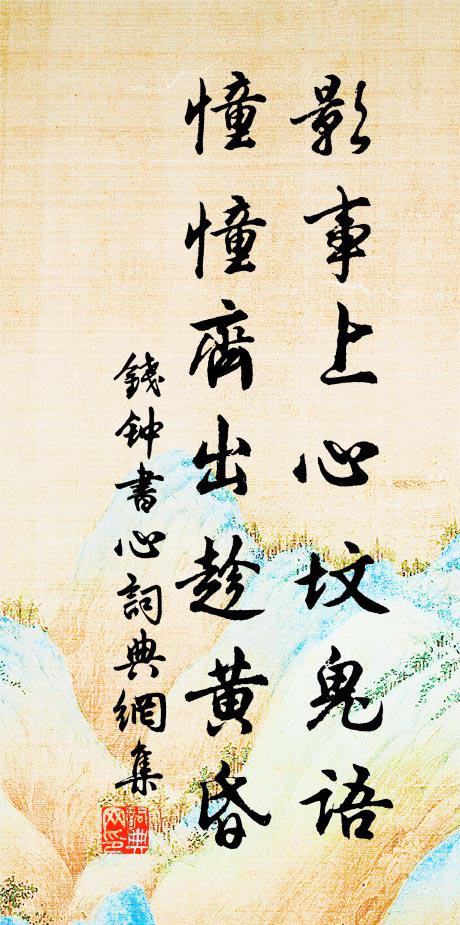 影事上心坟鬼語
憧憧齊出趁黄昏
錢钟書心詞典網集
詞典
网印